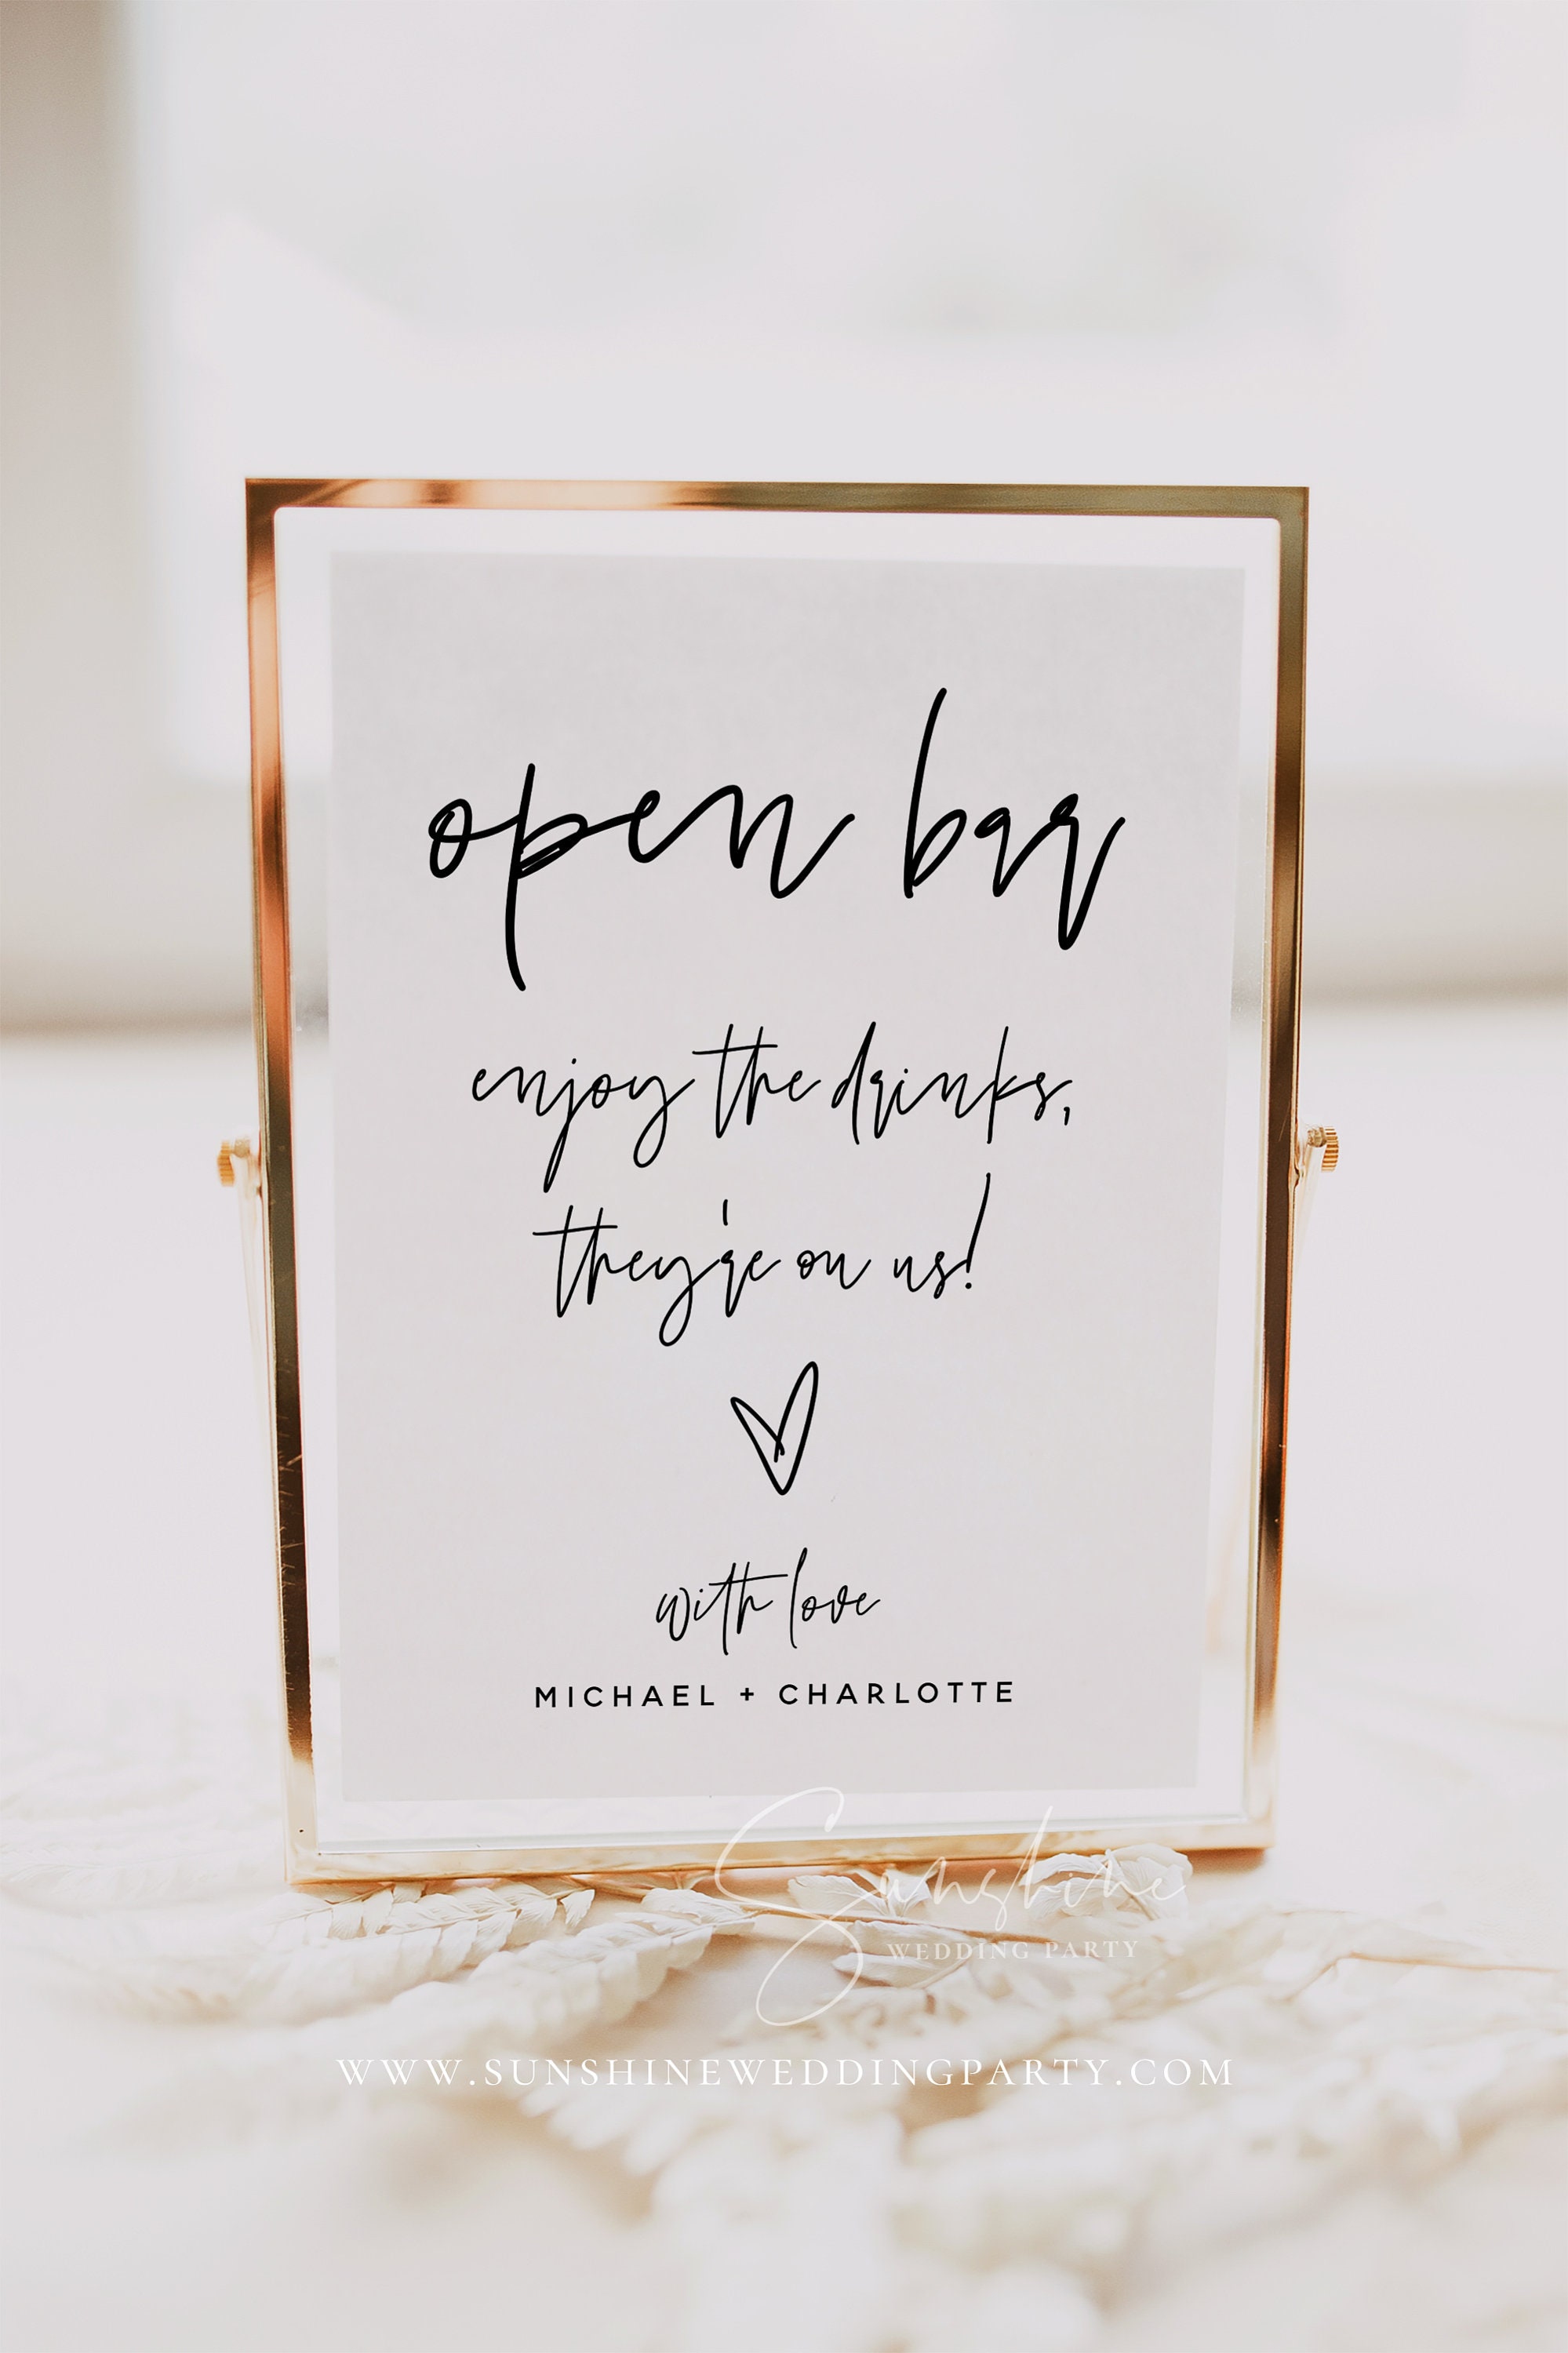 open bar
enjoy the drinks,
they're on us!
with love
MICHAEL + CHARLOTTE
Sunshine
WEDDING PARTY
WWW.SUNSHINEWEDDINGPARTY.COM